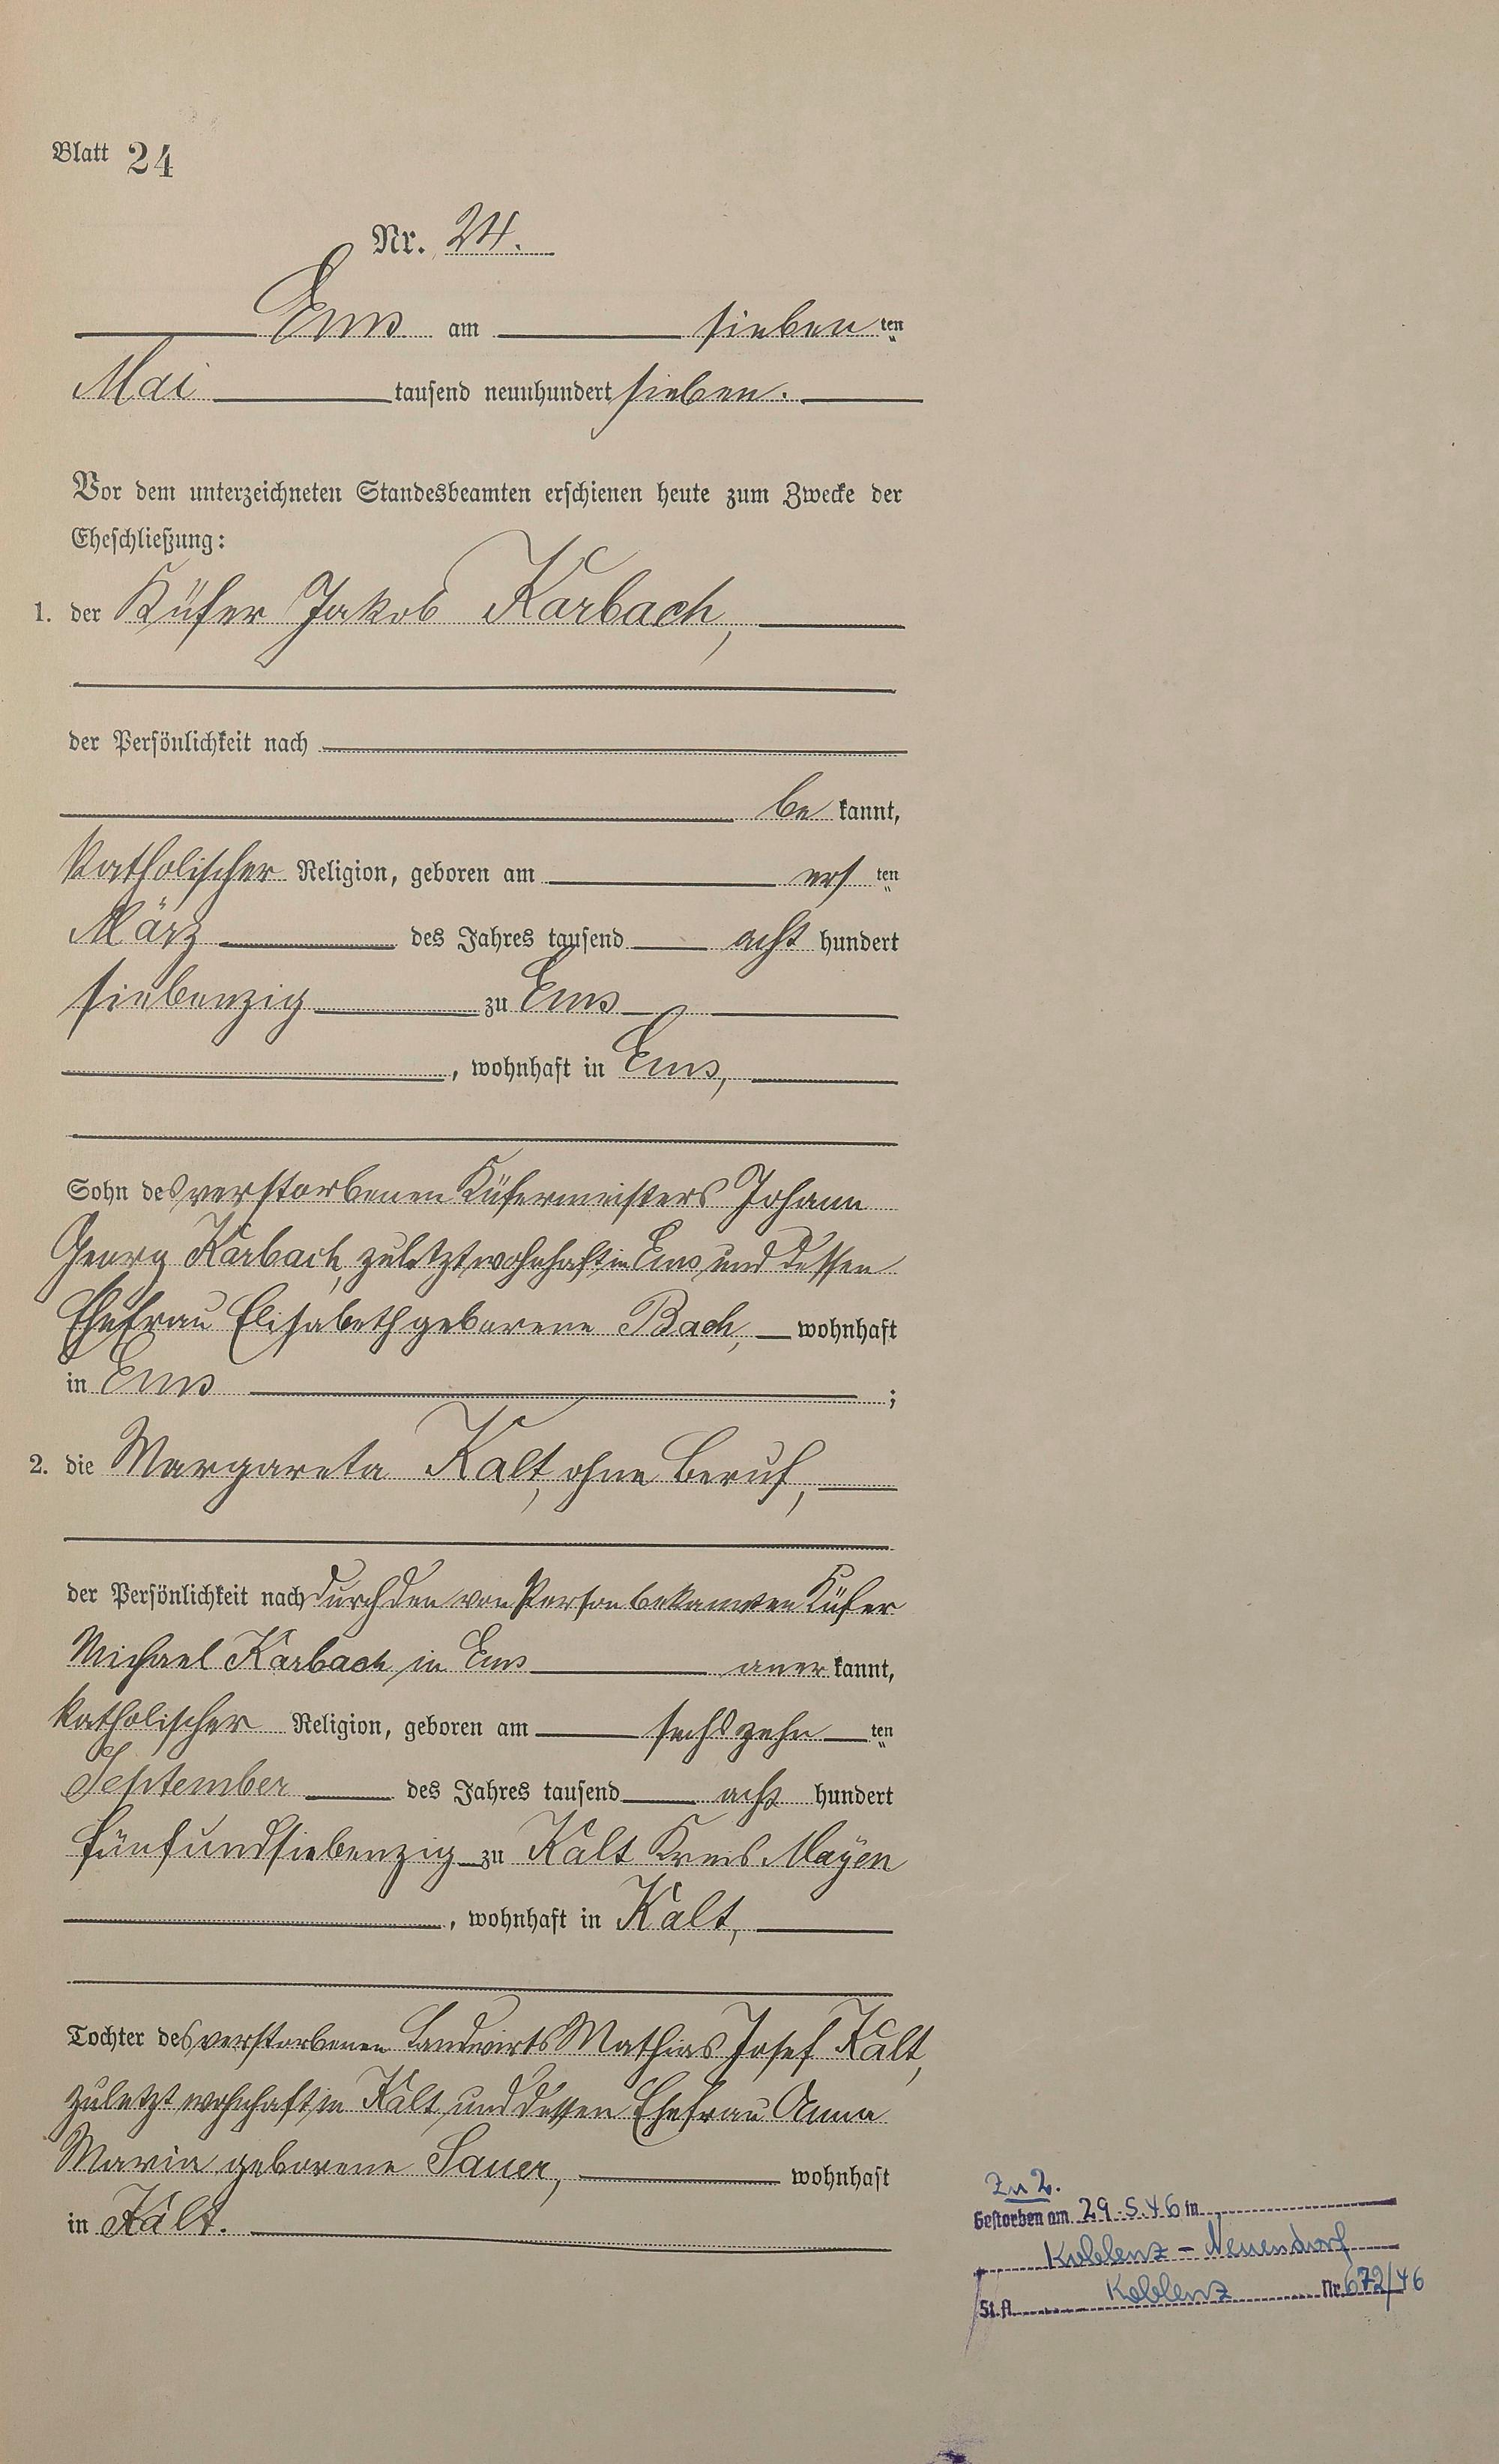 Blatt 24
Nr. 24.
Ems am siebenten
Mai tausend neunhundert sieben.
Vor dem unterzeichneten Standesbeamten erschienen heute zum Zwecke der
Eheschließung:
1. der Küfer Jakob Karbach,
der Persönlichkeit nach
bekannt,
katholischer Religion, geboren am ersten
März des Jahres tausend acht hundert
siebenzig zu Ems
, wohnhaft in Ems,
Sohn des verstorbenen Küfermeisters Johann
Georg Karbach, zuletzt wohnhaft in Ems und dessen
Ehefrau Elisabeth geborene Bach, wohnhaft
in Ems ;
2. die Margareta Kalt, ohne Beruf,
der Persönlichkeit nach durch den von Person bekannten Küfer
Michael Karbach in Ems anerkannt,
katholischer Religion, geboren am sechszehnten
September des Jahres tausend acht hundert
fünfundsiebenzig zu Kalt Kreis Mayen
, wohnhaft in Kalt,
Tochter des verstorbenen Landwirts Mathias Josef Kalt,
zuletzt wohnhaft in Kalt und dessen Ehefrau Anna
Maria geborene Sauer, wohnhaft
in Kalt.
Zu 2.
Gestorben am 29.5.46 in
Koblenz-Neuendorf
St.A. Koblenz Nr. 672/46